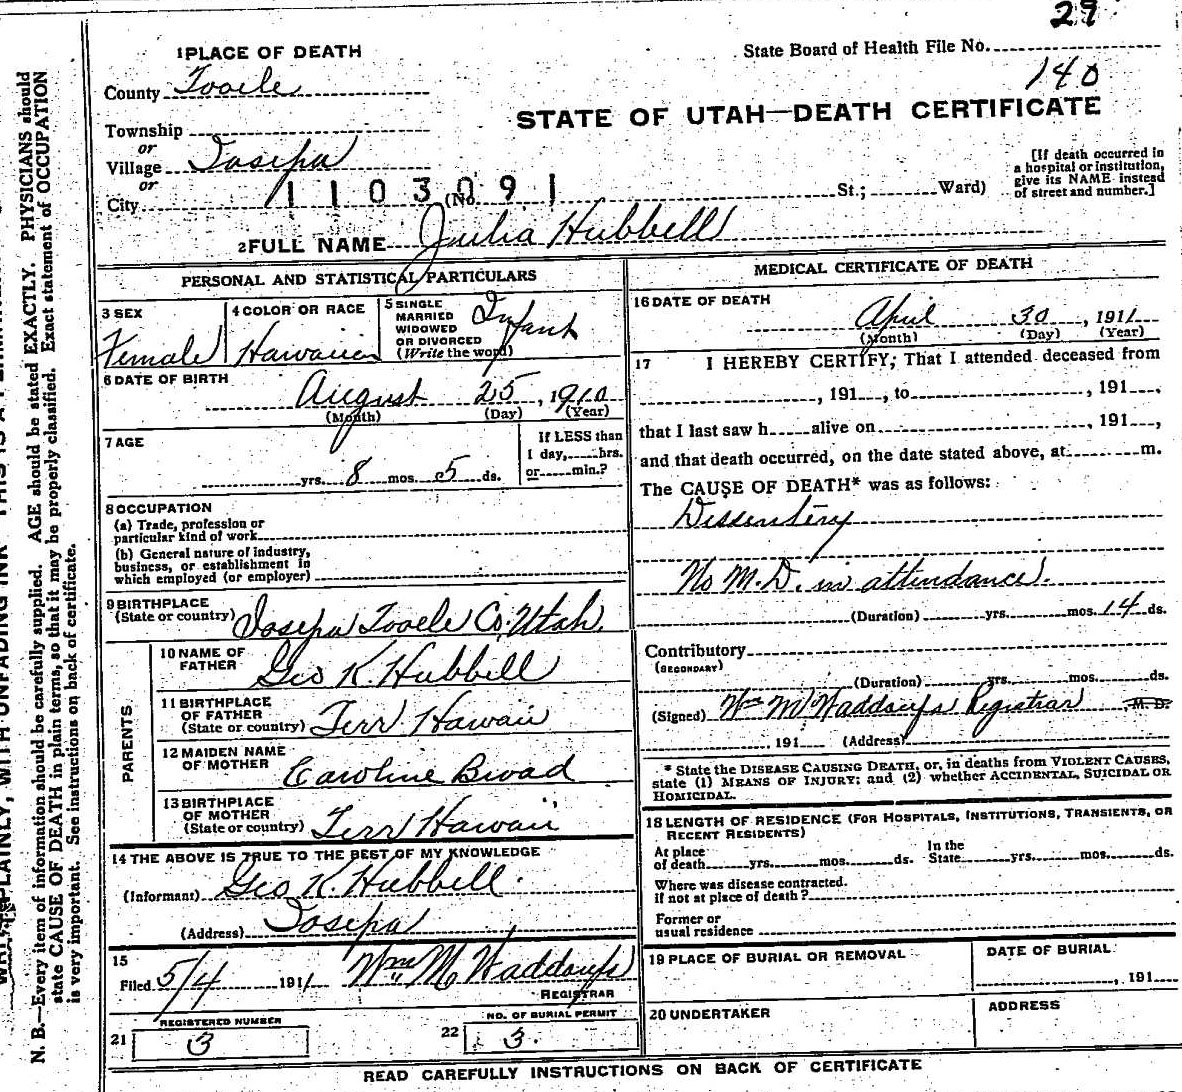 29
1 PLACE OF DEATH
State Board of Health File No.
County Tooele
140
STATE OF UTAH—DEATH CERTIFICATE
Township
or
Village Iosepa
or
City
1103091
(No. St.; Ward)
[If death occurred in
a hospital or institution,
give its NAME instead
of street and number.]
2 FULL NAME Julia Hubbell
PERSONAL AND STATISTICAL PARTICULARS
3 SEX
Female
4 COLOR OR RACE
Hawaiien
5 SINGLE
MARRIED
WIDOWED
OR DIVORCED
(Write the word)
Infant
6 DATE OF BIRTH
August 25, 1910
(Month) (Day) (Year)
7 AGE
yrs. 8 mos. 5 ds.
If LESS than
1 day, hrs.
or min.?
8 OCCUPATION
(a) Trade, profession or
particular kind of work
(b) General nature of industry,
business, or establishment in
which employed (or employer)
9 BIRTHPLACE
(State or country) Iosepa Tooele Co. Utah.
PARENTS
10 NAME OF
FATHER Geo K. Hubbell
11 BIRTHPLACE
OF FATHER
(State or country) Terr Hawaii
12 MAIDEN NAME
OF MOTHER Caroline Broad
13 BIRTHPLACE
OF MOTHER
(State or country) Terr Hawaii
14 THE ABOVE IS TRUE TO THE BEST OF MY KNOWLEDGE
(Informant) Geo K. Hubbell.
(Address) Iosepa
15
Filed 5/4 1911 Wm M Waddoups
REGISTRAR
21 REGISTERED NUMBER
3
22 NO. OF BURIAL PERMIT
3.
MEDICAL CERTIFICATE OF DEATH
16 DATE OF DEATH
April 30, 1911
(Month) (Day) (Year)
17 I HEREBY CERTIFY; That I attended deceased from
, 191 , to , 191 ,
that I last saw h alive on , 191 ,
and that death occurred, on the date stated above, at m.
The CAUSE OF DEATH* was as follows:
Dissentery
No M.D. in attendance.
(Duration) yrs. mos. 14 ds.
Contributory
(SECONDARY)
(Duration) yrs. mos. ds.
(Signed) Wm M Waddoups Registrar M. D.
191 (Address)
* State the DISEASE CAUSING DEATH, or, in deaths from VIOLENT CAUSES,
state (1) MEANS OF INJURY; and (2) whether ACCIDENTAL, SUICIDAL OR
HOMICIDAL.
18 LENGTH OF RESIDENCE (FOR HOSPITALS, INSTITUTIONS, TRANSIENTS, OR
RECENT RESIDENTS)
At place
of death yrs. mos. ds.
In the
State yrs. mos. ds.
Where was disease contracted.
if not at place of death?
Former or
usual residence
19 PLACE OF BURIAL OR REMOVAL
DATE OF BURIAL
, 191
20 UNDERTAKER
ADDRESS
READ CAREFULLY INSTRUCTIONS ON BACK OF CERTIFICATE
PLAINLY, WITH UNFADING INK
N. B.—Every item of information should be carefully supplied. AGE should be stated EXACTLY. PHYSICIANS should
state CAUSE OF DEATH in plain terms, so that it may be properly classified. Exact statement of OCCUPATION
is very important. See instructions on back of certificate.